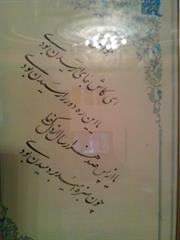 ای کاش که جای آرمیدن بودی
یا این ره دور را رسیدن بودی
یا از پس صد هزار سال از دل خاک
چون سبزه امید بر دمیدن بودی